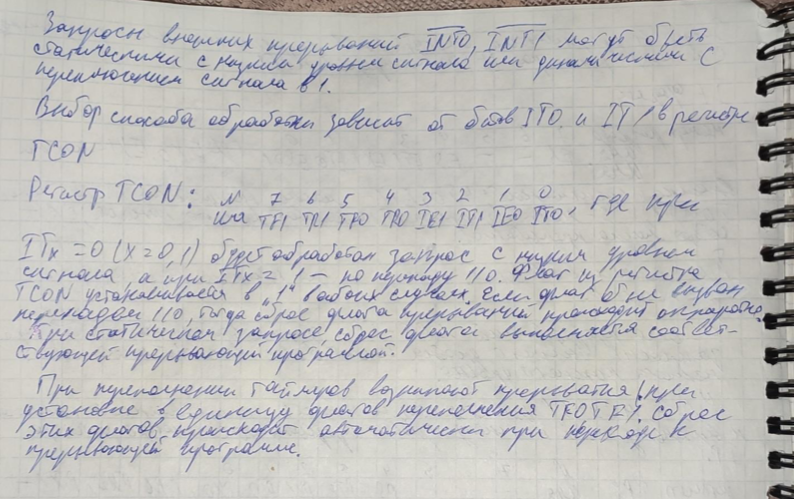 Запросы внешних прерываний INT0, INT1 могут быть
статическими с низким уровнем сигнала или динамическими с
переключением сигнала в 1.
Выбор способа обработки зависит от битов IT0 и IT1 в регистре
TCON
Регистр TCON: N 7 6 5 4 3 2 1 0
TF1 TR1 TF0 TR0 IE1 IT1 IE0 IT0, где при
ITx = 0 (x = 0,1) будет обработан запрос с низким уровнем
сигнала, а при ITx = 1 – по переходу 1/0. Флаг из регистра
TCON устанавливается в "1" в обоих случаях. Если флаг был вызван
переходом 1/0, тогда сброс флага прерывания происходит аппаратно.
При статическом запросе, сброс флага выполняется соответ-
ствующей прерывающей программой.
При переполнении таймеров возникают прерывания, при
установке в единицу флагов переполнения TF0 TF1. Сброс
этих флагов происходит автоматически при переходе к
прерывающей программе.